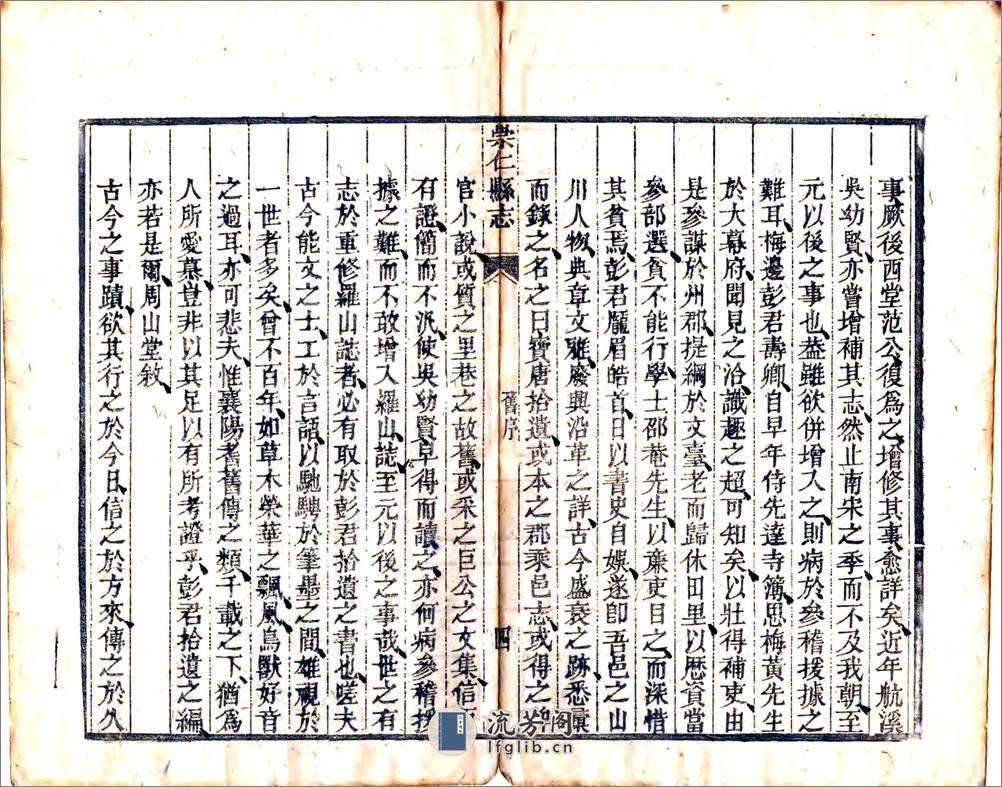 事厥後西堂范公復爲之增修其事愈詳矣近年航溪
吳幼賢亦嘗增補其志然止南宋之季而不及我朝至
元以後之事也葢雖欲併增入之則病於參稽援據之
難耳梅邊彭君壽卿自早年侍先達寺簿思梅黃先生
於大幕府聞見之洽識趣之超可知矣以壯得補吏由
是參謀於州郡提綱於文臺老而歸休田里以歷資當
參部選貧不能行學士邵菴先生以廉吏目之而深惜
其貧焉彭君龐眉皓首日以書史自娛遂卽吾邑之山
川人物典章文雅廢興沿革之詳古今盛衰之跡悉彚
而錄之名之曰寶唐拾遺或本之郡乘邑志或得之
崇仁縣志
舊序
四
官小說或質之里巷之故舊或采之巨公之文集信
有證簡而不汎使吳幼賢早得而讀之亦何病參稽援
據之難而不敢增入羅山誌至元以後之事哉世之有
志於重修羅山誌者必有取於彭君拾遺之書也嗟夫
古今能文之士工於言語以馳騁於筆墨之間雄視於
一世者多矣曾不百年如草木榮華之飄風鳥獸好音
之過耳亦可悲夫惟襄陽耆舊傳之類千載之下猶爲
人所愛慕豈非以其足以有所考證乎彭君拾遺之編
亦若是爾周山堂敘
古今之事蹟欲其行之於今日信之於方來傳之於久
流芳阁
lfglib.cn